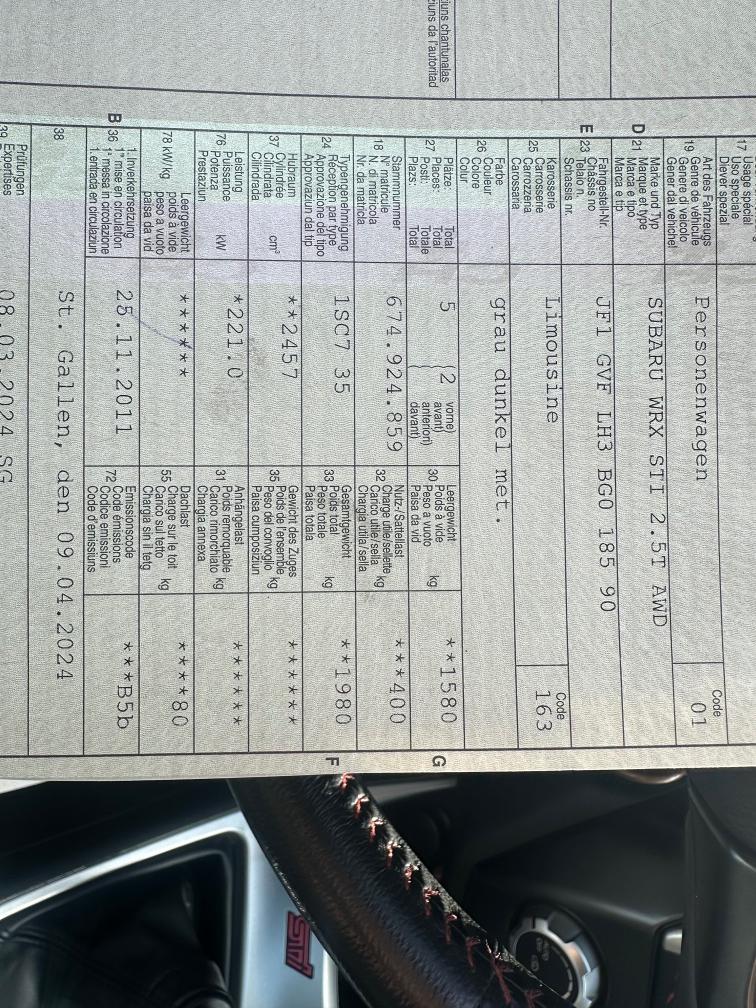 17 Usage spécial
Uso speciale
Diever spezial
Code
19 Art des Fahrzeugs
Genre de véhicule
Genere di veicolo
Gener dal vehichel
Personenwagen
01
D 21 Marke und Typ
Marque et type
Marca e tipo
Marca e tip
SUBARU WRX STI 2.5T AWD
E 23 Fahrgestell-Nr.
Châssis no
Telaio n.
Schassis nr.
JF1 GVF LH3 BG0 185 90
Code
25 Karosserie
Carrosserie
Carrozzeria
Carossaria
Limousine
163
26 Farbe
Couleur
Colore
Colur
grau dunkel met.
27 Plätze: Total
Places: Total
Posti: Totale
Plazs: Total
5
2
vorne)
avant)
anteriori)
davant)
30 Leergewicht
Poids à vide
Peso a vuoto
Paisa da vid
kg
**1580
G
18 Stammnummer
N° matricule
N. di matricola
Nr. da matricla
674.924.859
32 Nutz-/Sattellast
Charge utile/sellette
Carico utile/sella
Chargia utila/sella
kg
***400
24 Typengenehmigung
Réception par type
Approvazione del tipo
Approvaziun dal tip
1SC7 35
33 Gesamtgewicht
Poids total
Peso totale
Paisa totala
kg
**1980
F
37 Hubraum
Cylindrée
Cilindrata
Cilindrada
cm³
**2457
35 Gewicht des Zuges
Poids de l'ensemble
Peso del convoglio
Paisa cumposiziun
kg
******
76 Leistung
Puissance
Potenza
Prestaziun
kW
*221.0
31 Anhängelast
Poids remorquable
Carico rimorchiato
Chargia annexa
kg
******
78 kW/kg
Leergewicht
poids à vide
peso a vuoto
paisa da vid
******
55 Dachlast
Charge sur le toit
Carico sul tetto
Chargia sin il tetg
kg
****80
B 36 1. Inverkehrsetzung
1re mise en circulation
1a messa in circolazione
1. entrada en circulaziun
25.11.2011
72 Emissionscode
Code émissions
Codice emissioni
Code d'emissiuns
***B5b
38
St. Gallen, den 09.04.2024
39 Prüfungen
Expertises
08.03.2024 SG
ciuns chantunalas
ciuns da l'autoritad
STI